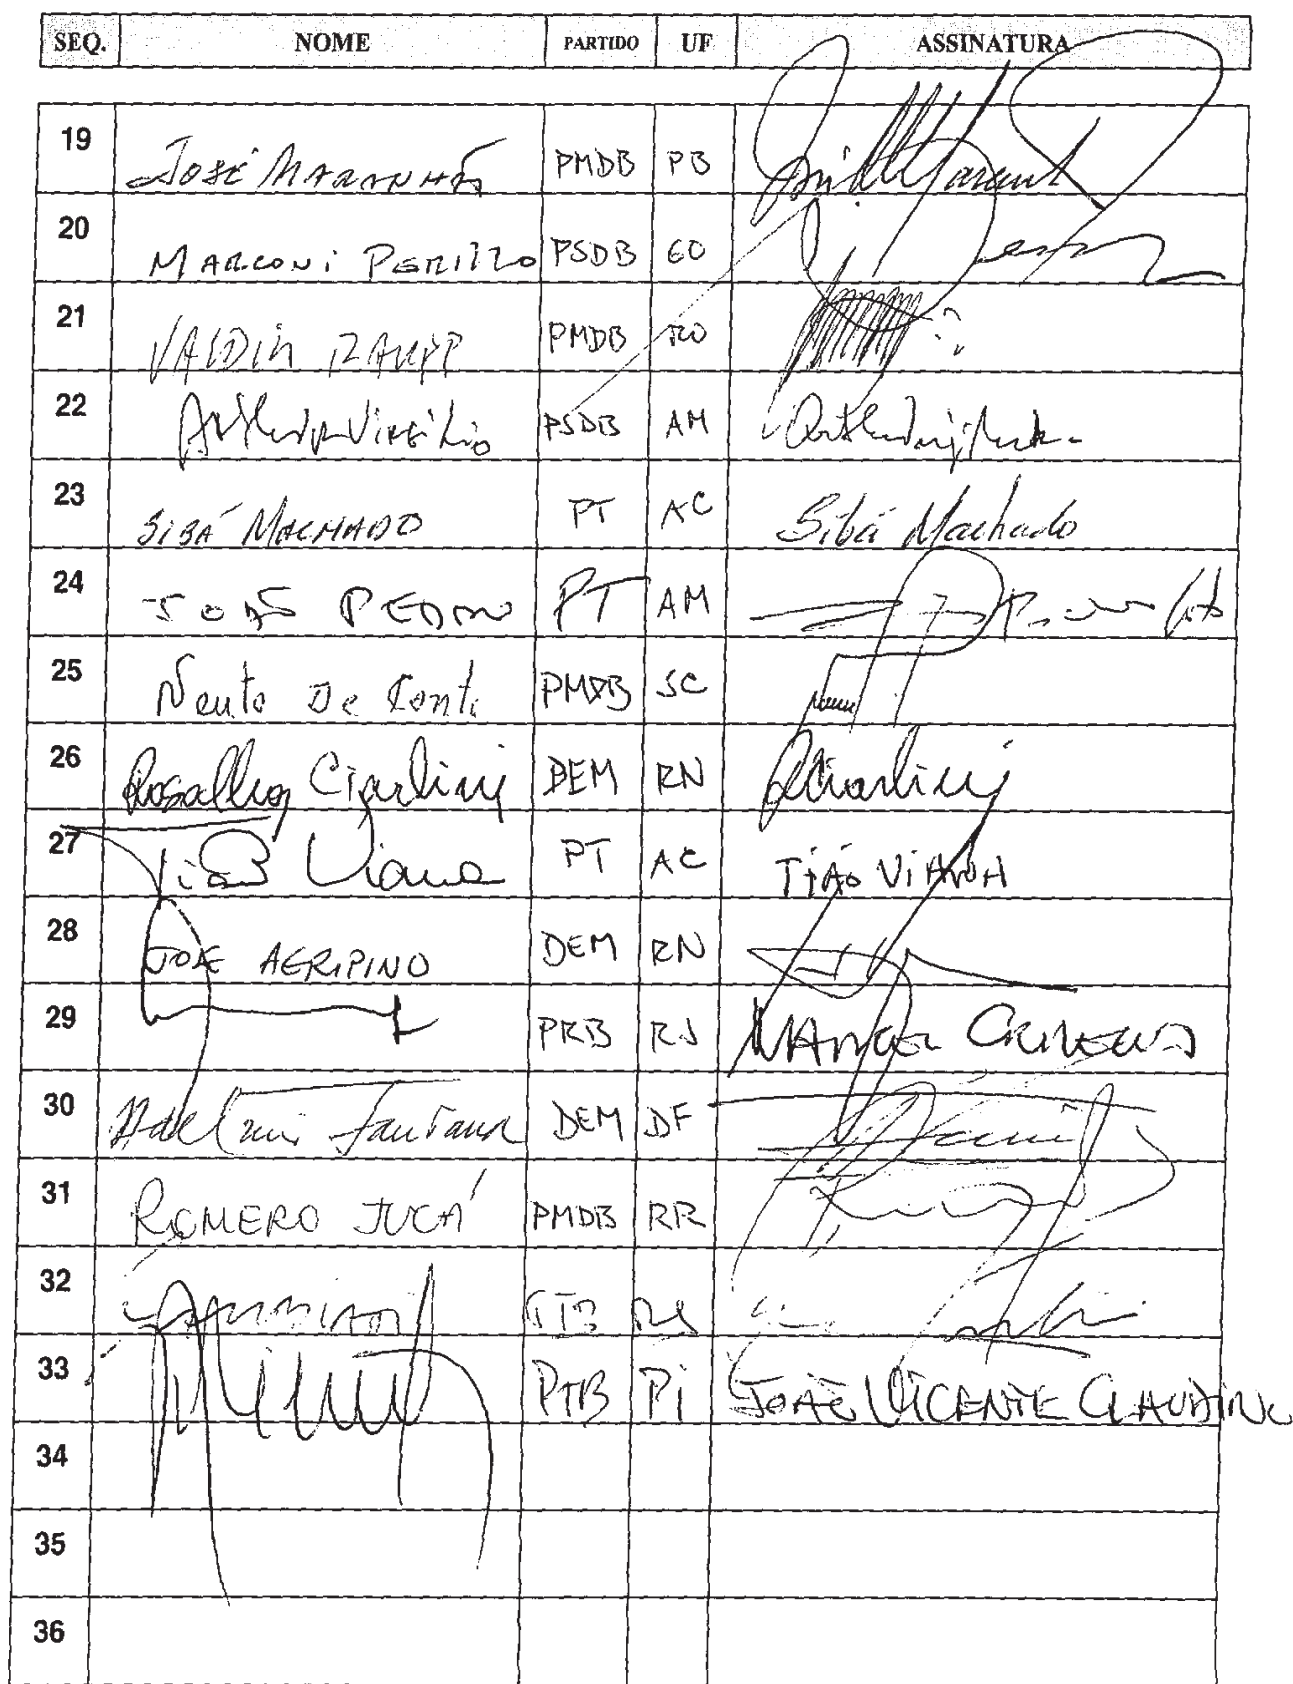 SEQ. NOME PARTIDO UF ASSINATURA
19 JOSÉ MARANHÃO PMDB PB
20 MARCONI PERILLO PSDB GO
21 VALDIR RAUPP PMDB RO
22 Arthur Virgílio PSDB AM
23 SIBÁ MACHADO PT AC Sibá Machado
24 JOÃO PEDRO PT AM
25 Neuto De Conto PMDB SC
26 Rosalba Ciarlini DEM RN RCiarlini
27 Tião Viana PT AC TIÃO VIANA
28 JOSE AGRIPINO DEM RN
29 PRB RJ
30 Adelmir Santana DEM DF
31 ROMERO JUCÁ PMDB RR
32
33 PTB PI JOÃO VICENTE CLAUDINO
34
35
36